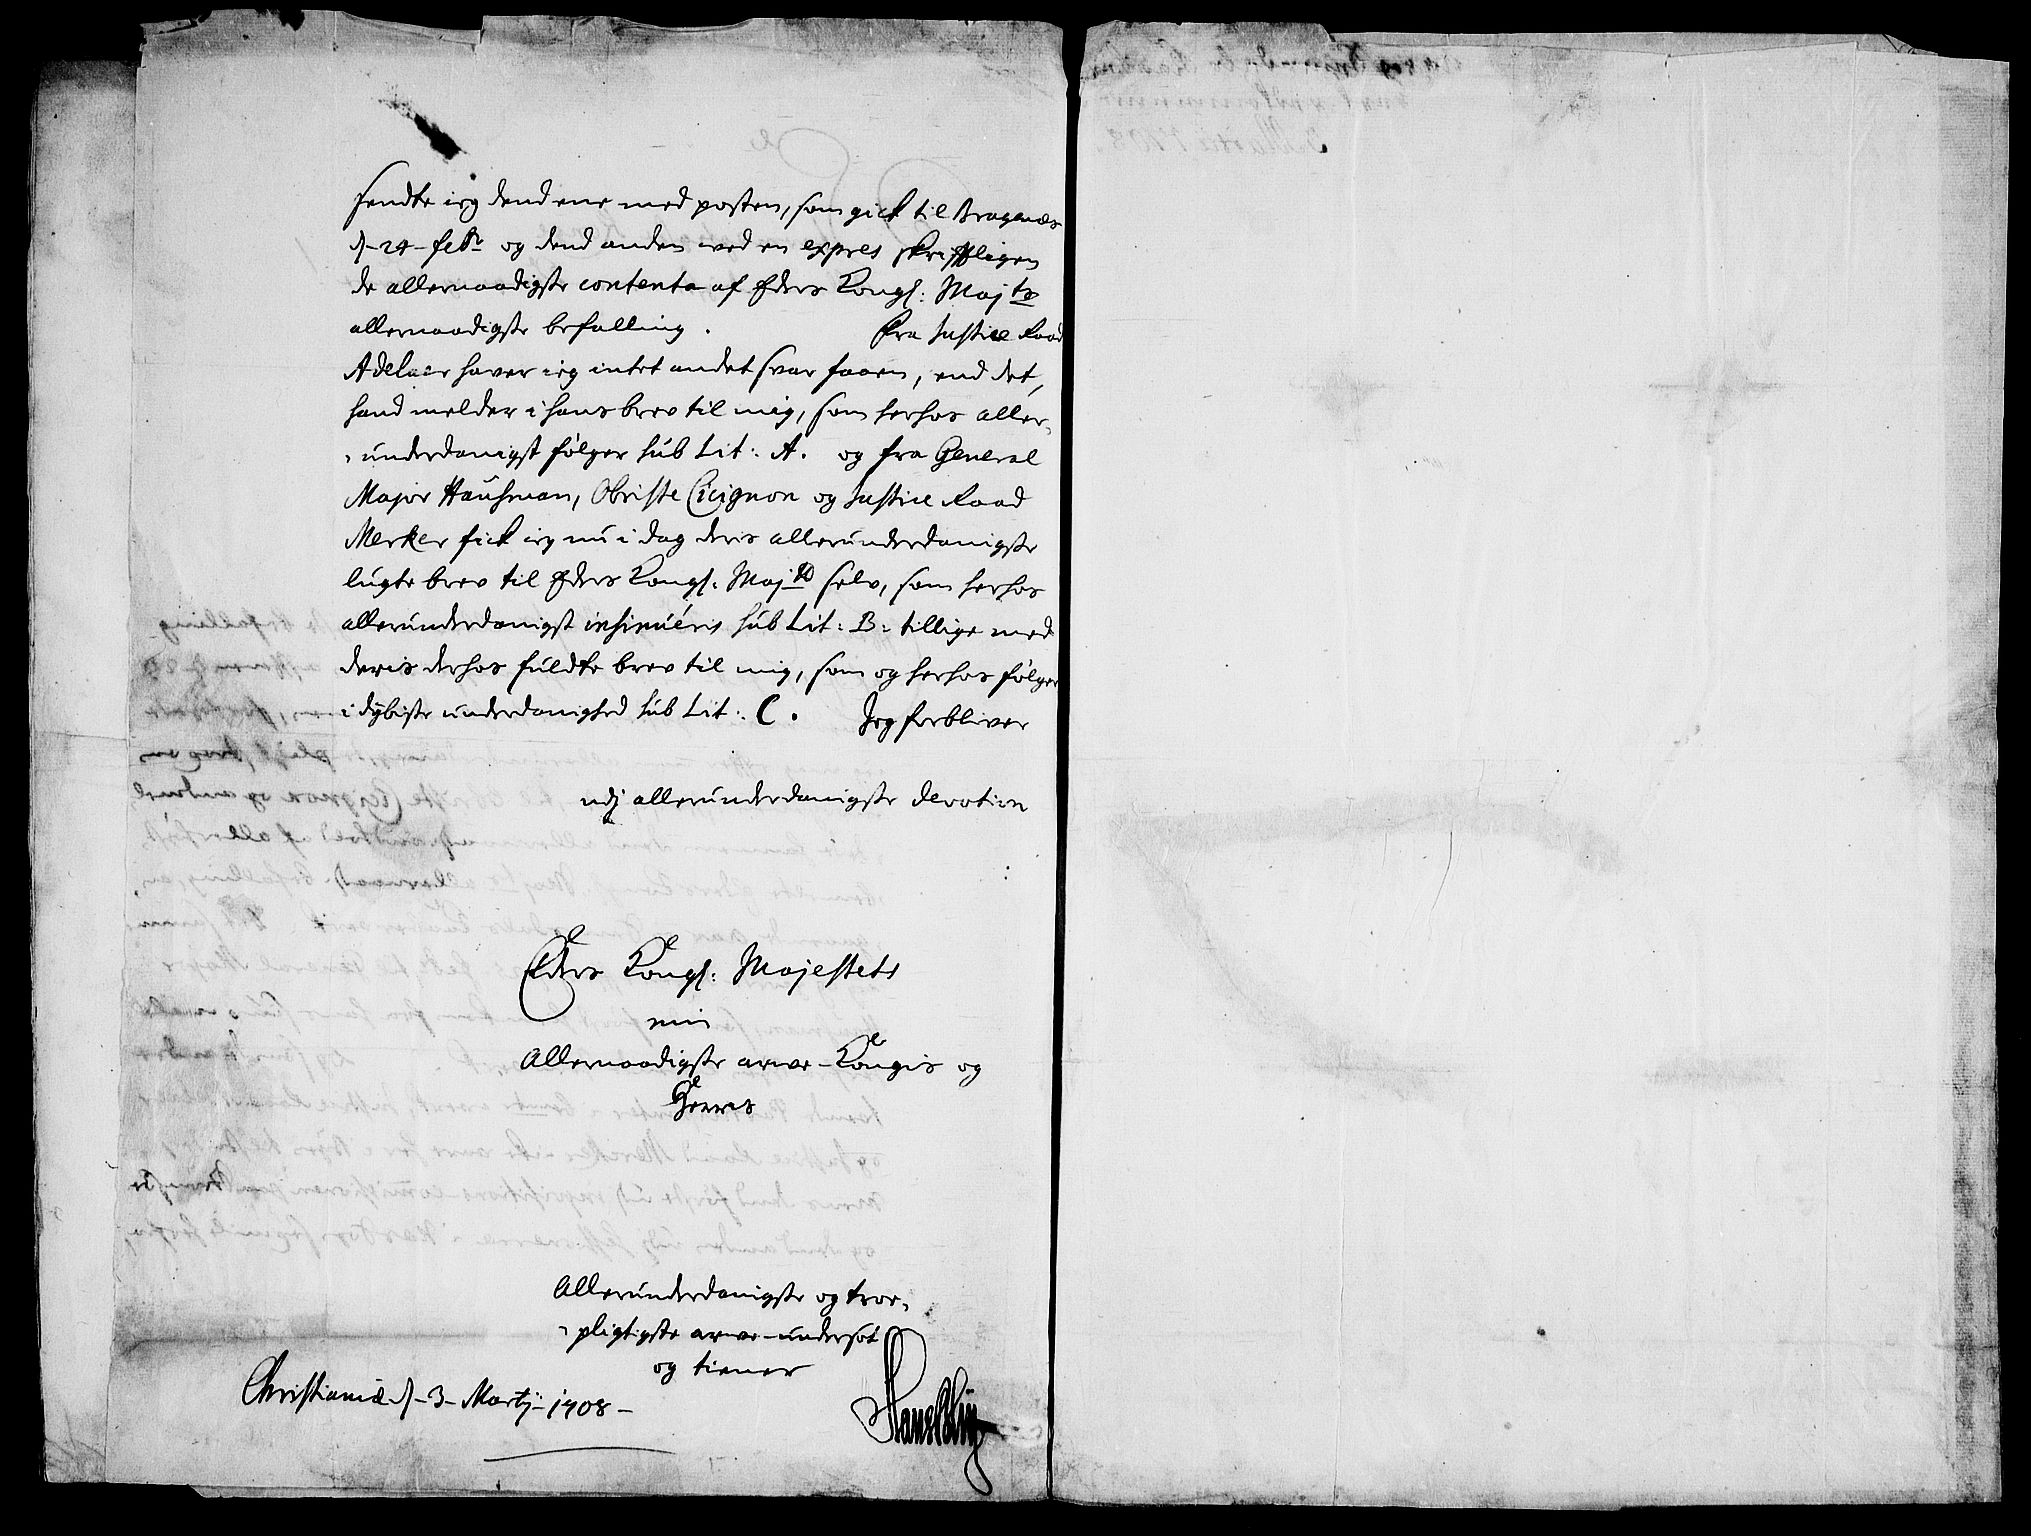 sendte ieg dend ene med posten, som gick til Bragenæs
d-24-febr og dend anden ved en expres skrifftligen
de allernaadigste contenta af Eders Kongl: Majts
allernaadigste befalling. Fra Justice Raad
Adelaer haver ieg intet andet svar faaen, end det,
hand melder i hans brev til mig, som herhos aller-
-underdanigst følger sub Lit: A. og fra General
Major Hausman, Obriste Cicignon og Justice Raad
Merker fick ieg nu i dag deris allerunderdanigste
lugte brev til Eders Kongl: Majt selv, som herhos
allerunderdanigst insinuéris sub Lit: B: tillige med
deris derhos fuldte brev til mig, som og herhos følger
i dybiste underdanighed sub Lit: C. Jeg forbliver
udj allerunderdanigste devotion
Eders Kongl: Majestets
min
Allernaadigste arve-Kongis og
Herris
Allerunderdanigste og troe-
-pligtigste arve-undersot
og tiener
Christiania d-3-Martij-1708-